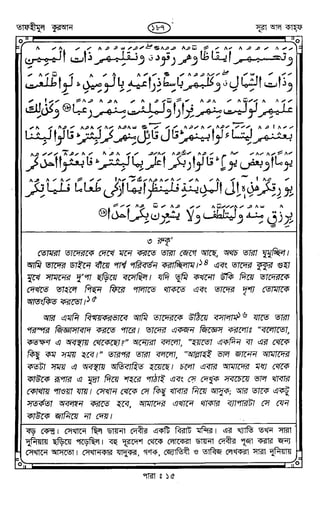 তাফহীমুল কুরআন ১৮৭ সূরা আল কাহফ
وَتَحْسَبُهُمْ أَيْقَاظًا وَهُمْ رُقُودٌ وَنُقَلِّبُهُمْ ذَاتَ الْيَمِينِ
وَذَاتَ الشِّمَالِ وَكَلْبُهُمْ بَاسِطٌ ذِرَاعَيْهِ بِالْوَصِيدِ لَوِ اطَّلَعْتَ
عَلَيْهِمْ لَوَلَّيْتَ مِنْهُمْ فِرَارًا وَلَمُلِئْتَ مِنْهُمْ رُعْبًا وَكَذَلِكَ
بَعَثْنَاهُمْ لِيَتَسَاءَلُوا بَيْنَهُمْ قَالَ قَائِلٌ مِنْهُمْ كَمْ لَبِثْتُمْ قَالُوا لَبِثْنَا
يَوْمًا أَوْ بَعْضَ يَوْمٍ قَالُوا رَبُّكُمْ أَعْلَمُ بِمَا لَبِثْتُمْ فَابْعَثُوا أَحَدَكُمْ
بِوَرِقِكُمْ هَذِهِ إِلَى الْمَدِينَةِ فَلْيَنْظُرْ أَيُّهَا أَزْكَى طَعَامًا فَلْيَأْتِكُمْ
بِرِزْقٍ مِنْهُ وَلْيَتَلَطَّفْ وَلَا يُشْعِرَنَّ بِكُمْ أَحَدًا
৩ রুকূ'
তোমরা তাদেরকে দেখে মনে করতে তারা জেগে আছে, অথচ তারা ঘুমুচ্ছিল।
আমি তাদের ডাইনে বাঁয়ে পার্শ্ব পরিবর্তন করাচ্ছিলাম।১৪ এবং তাদের কুকুর গুহা
মুখে সামনের দু'পা ছড়িয়ে বসেছিল। যদি তুমি কখনো উঁকি দিয়ে তাদেরকে
দেখতে তাহলে পিছন ফিরে পালাতে থাকতে এবং তাদের দৃশ্য তোমাকে
আতংকিত করতো।১৫
আর এমনি বিস্ময়করভাবে আমি তাদেরকে উঠিয়ে বসালাম১৬ যাতে তারা
পরস্পর জিজ্ঞাসাবাদ করতে পারে। তাদের একজন জিজ্ঞেস করলোঃ "বলোতো,
কতক্ষণ এ অবস্থায় থেকেছো?" অন্যেরা বললো, "হয়তো একদিন বা এর থেকে
কিছু কম সময় হবে।" তারপর তারা বললো, "আল্লাহই ভাল জানেন আমাদের
কতটা সময় এ অবস্থায় অতিবাহিত হয়েছে। চলো এবার আমাদের মধ্য থেকে
কাউকে রূপার এ মুদ্রা দিয়ে শহরে পাঠাই এবং সে দেখুক সবচেয়ে ভাল খাবার
কোথায় পাওয়া যায়। সেখান থেকে সে কিছু খাবার নিয়ে আসুক; আর তাকে একটু
সতর্কতা অবলম্বন করতে হবে, আমাদের এখানে থাকার ব্যাপারটা সে যেন
কাউকে জানিয়ে না দেয়।
বড় কেন্দ্র। সেখানে ছিল ডায়না দেবীর একটি বিরাট মন্দির। এর খ্যাতি তখন সারা
দুনিয়ায় ছড়িয়ে পড়েছিল। বহু দূরদেশ থেকে লোকেরা ডায়না দেবীর পূজা করার জন্য
সেখানে আসতো। সেখানকার যাদুকর, গণক, জ্যোতিষী ও তাবিজ লেখকরা সারা দুনিয়ায়
পারা ঃ ১৫